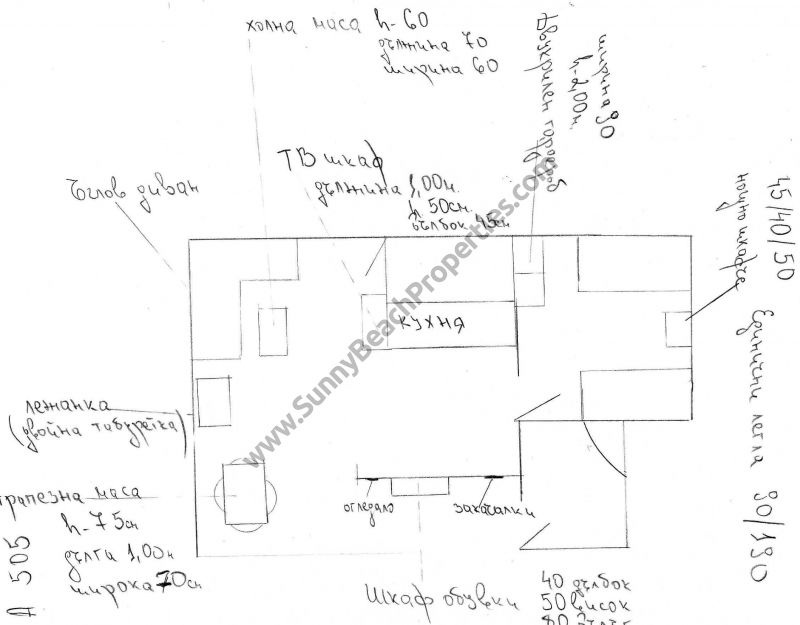 холна маса h-60
дължина 70
ширина 60
Двукрилен гардероб
ширина 90
h-2,00м.
ТВ шкаф
дължина 1,00м.
h 50см.
дълбок 45см
Ъглов диван
45/40/50
нощно шкафче
Единични легла 90/190
кухня
www.SunnyBeachProperties.com
лежанка
(двойна табуретка)
трапезна маса
h-75см
дълга 1,00м
широка 70см
огледало
закачалки
А 505
Шкаф обувки
40 дълбок
50 висок
80 дълъг